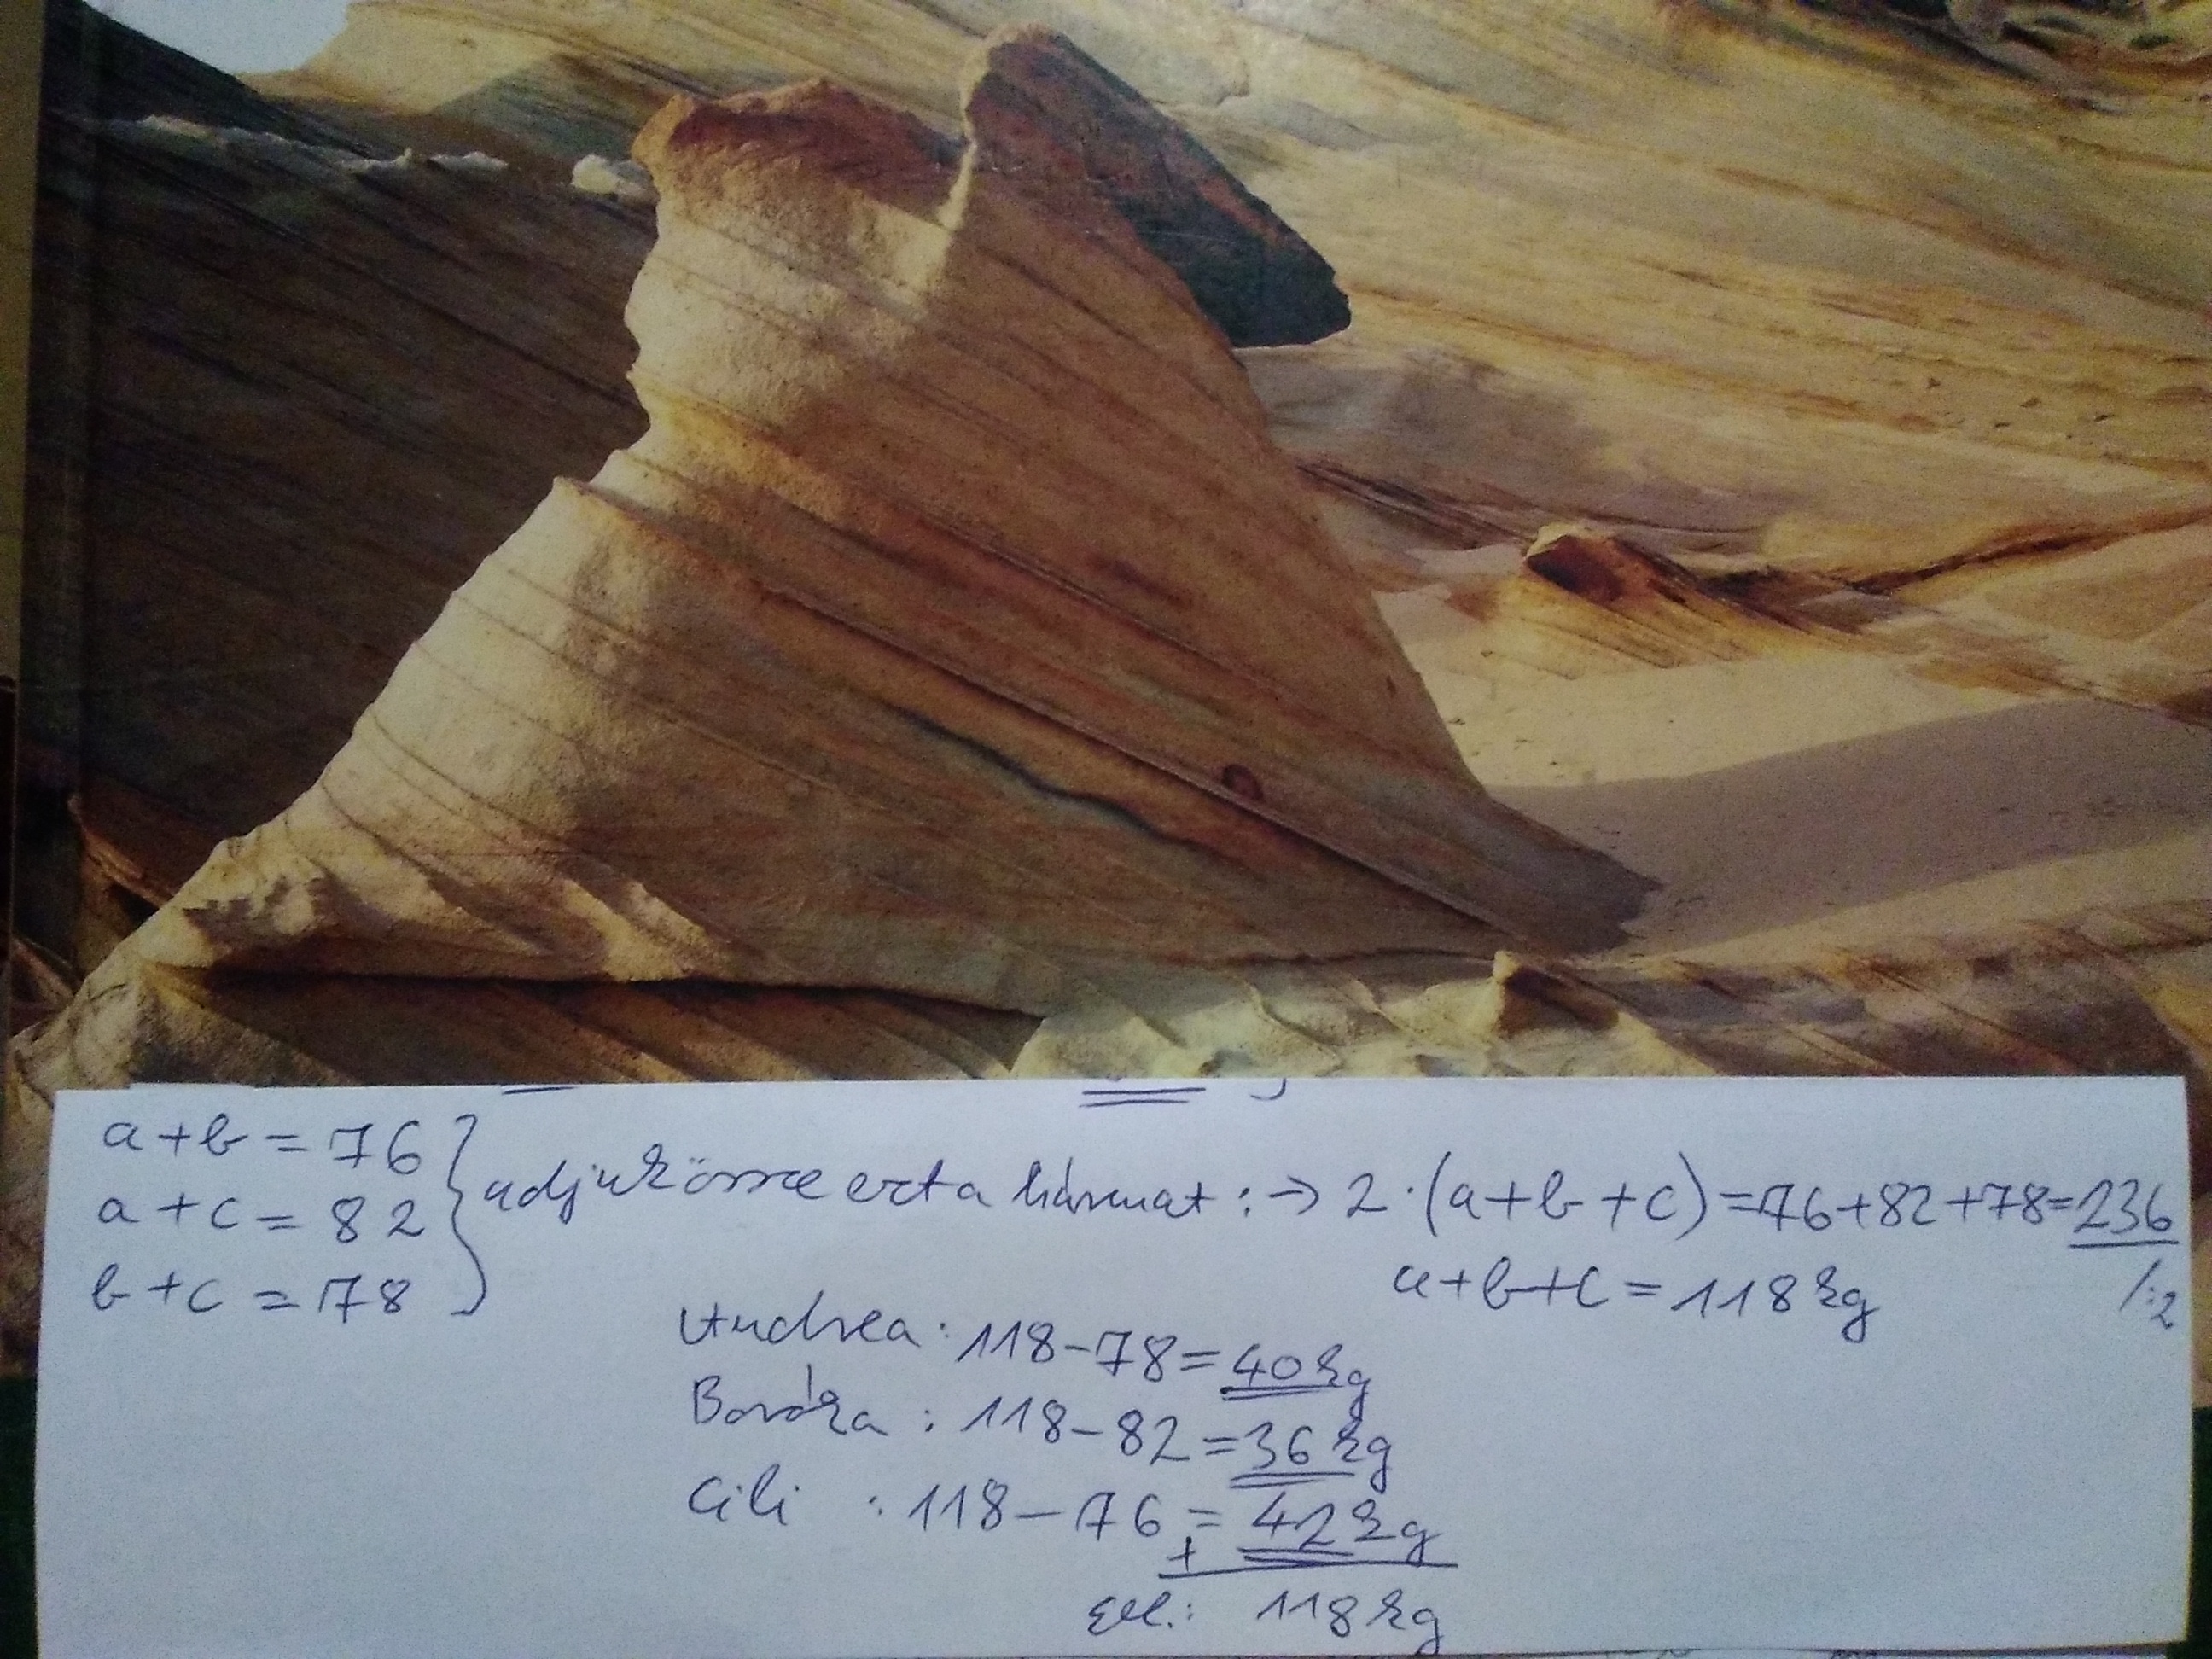 a+b=76
a+c=82
b+c=78
adjuk össze ezt a hármat: → 2·(a+b+c)=76+82+78=236
a+b+c=118kg /:2
Andrea: 118-78=40kg
Boróka: 118-82=36kg
Cili: 118-76=42kg
+
Ell.: 118kg